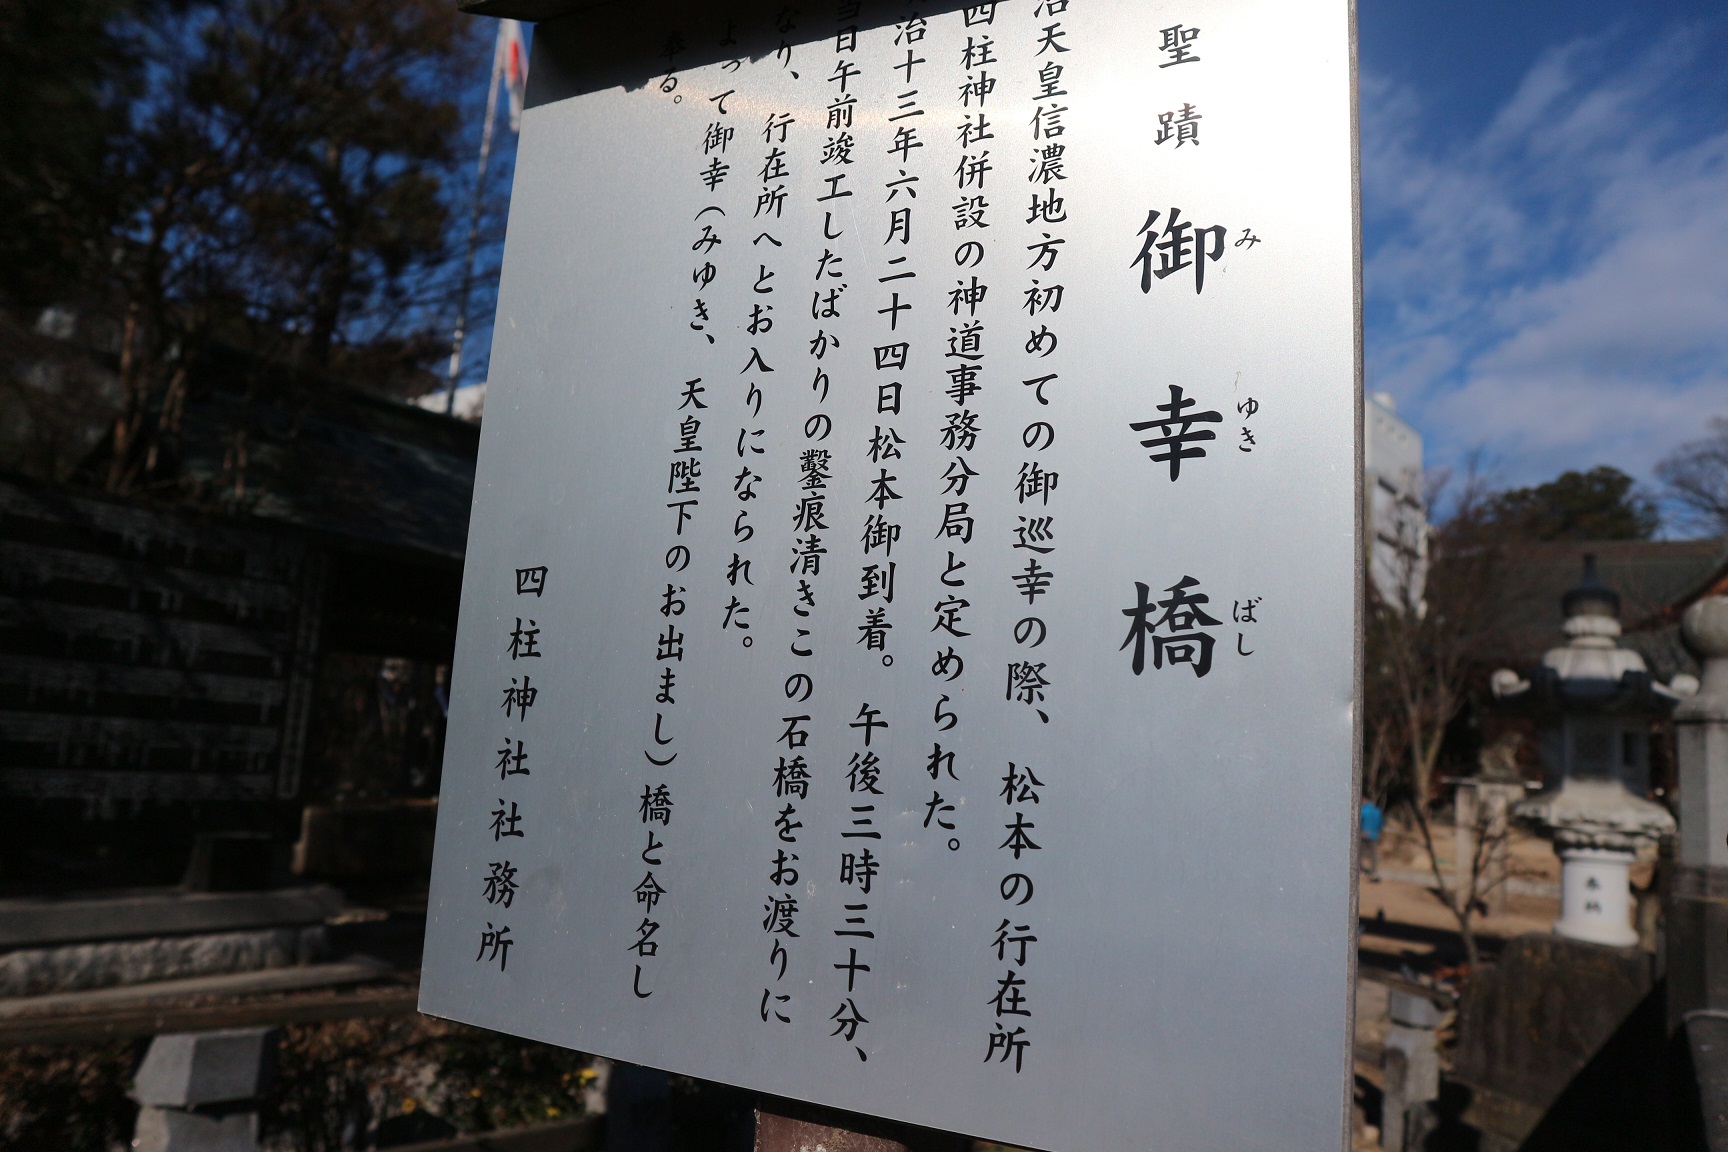 聖蹟 御幸橋
み ゆき ばし
治天皇信濃地方初めての御巡幸の際、松本の行在所
四柱神社併設の神道事務分局と定められた。
治十三年六月二十四日松本御到着。午後三時三十分、
当日午前竣工したばかりの鑿痕清きこの石橋をお渡りに
なり、行在所へとお入りになられた。
よって御幸（みゆき、天皇陛下のお出まし）橋と命名し
奉る。
四柱神社社務所
奉納